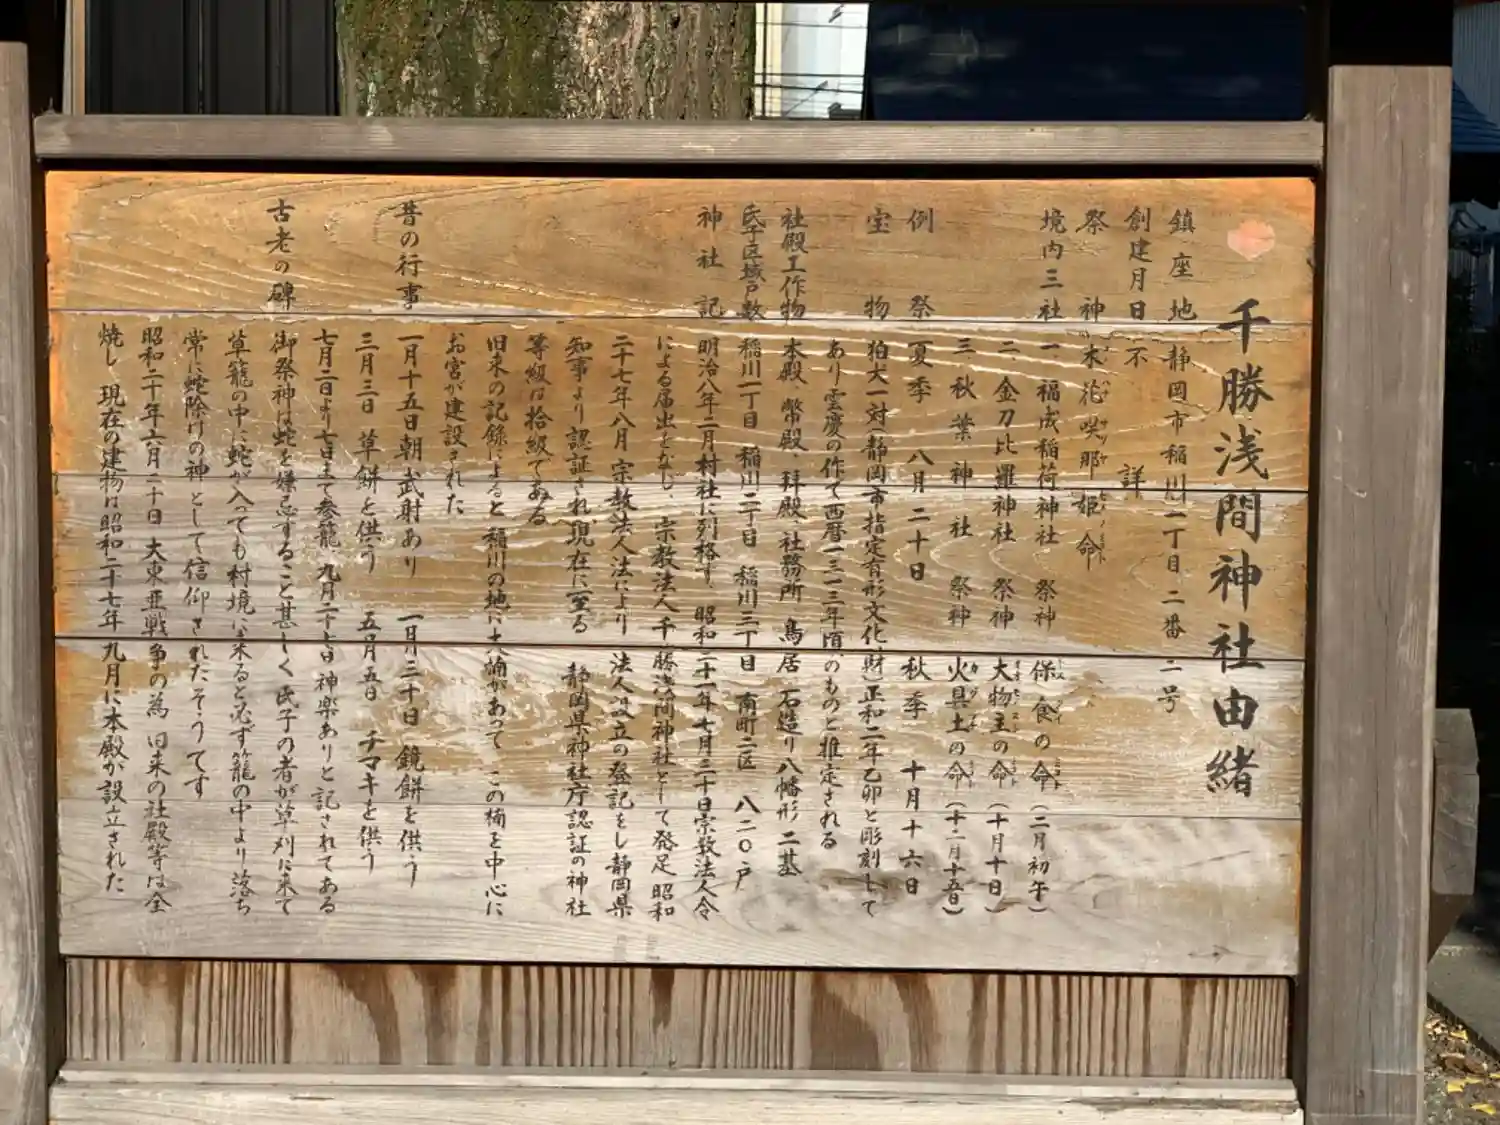 千勝浅間神社由緒
鎮座地 静岡市稲川一丁目二番二号
創建月日 不詳
祭神 木花咲耶姫命
境内三社 一、福成稲荷神社 祭神 保食の命(二月初午)
二、金刀比羅神社 祭神 大物主の命(十月十日)
三、秋葉神社 祭神 火具土の命(十二月十五日)
例祭 夏季 八月二十日 秋季 十月十六日
宝物 狛犬一対(静岡市指定有形文化財)正和二年乙卯と彫刻して
あり雲慶の作で西暦一三一三年頃のものと推定される
社殿工作物 本殿、幣殿、拝殿、社務所、鳥居 石造り八幡形 二基
氏子区域戸数 稲川一丁目 稲川二丁目 稲川三丁目 南町二区 八二〇戸
神社記 明治八年二月村社に列格す、昭和二十一年七月三十日宗教法人令
による届出をなし、宗教法人千勝浅間神社として発足昭和
二十七年八月宗教法人法により 法人設立の登記をし静岡県
知事より認証され現在に至る 静岡県神社庁認証の神社
等級は拾級である
旧来の記録によると稲川の地に大楠があって この楠を中心に
お宮が建設された
昔の行事 一月十五日朝武射あり 一月三十日 鏡餅を供う
三月三日 草餅を供う 五月五日 チマキを供う
七月二日より七日まで参籠 九月二十七日神楽ありと記されてある
古老の碑 御祭神は蛇を嫌忌すること甚しく氏子の者が草刈に来て
草籠の中に蛇が入っても村境に来ると必ず籠の中より落ち
常に蛇除けの神として信仰されたそうです
昭和二十年六月二十日 大東亜戦争の為 旧来の社殿等は全
焼し 現在の建物は昭和二十七年九月に本殿が設立された